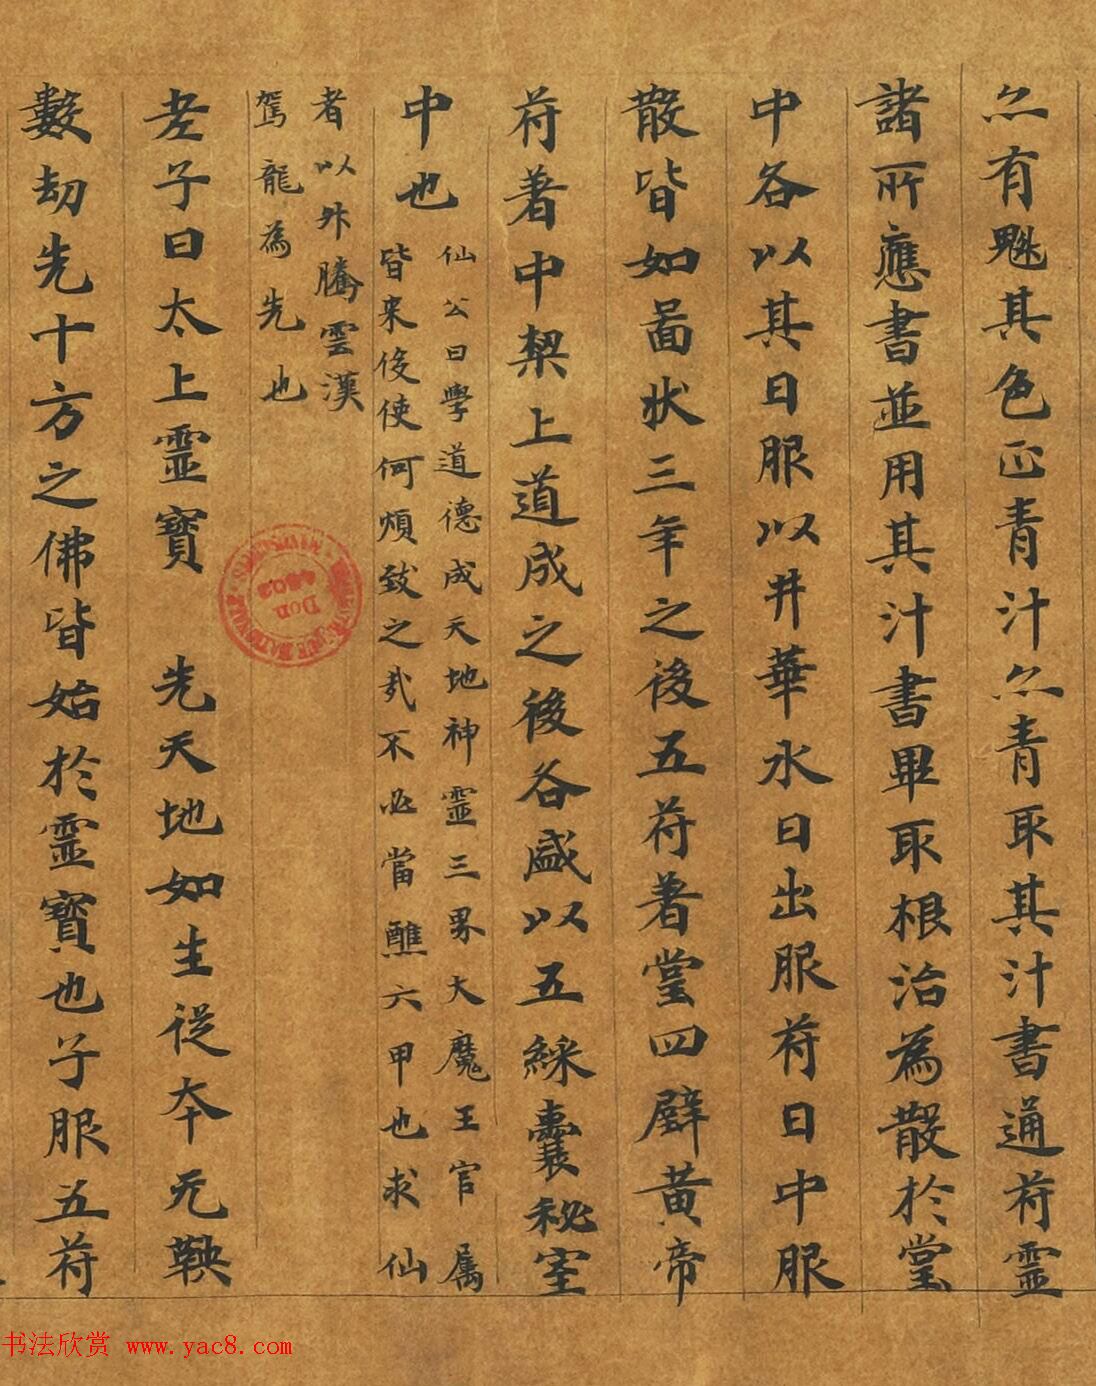 亦有魁其色正青汁亦青取其汁書通符霊
諸所應書並用其汁書畢取根治為散於堂
中各以其日服以井華水日出服符日中服
散皆如啚狀三年之後五符著堂四壁黄帝
符著中梁上道成之後各盛以五綵囊秘室
中也
仙公曰學道德成天地神霊三界大魔王官属
皆来侫使何煩致之哉不必當醮六甲也求仙
者以外騰雲漢
駕龍為先也
老子曰太上霊寶 先天地如生從本无鞅
數劫先十方之佛皆始於霊寶也子服五符
Don
4502
书法欣赏 www.yac8.com